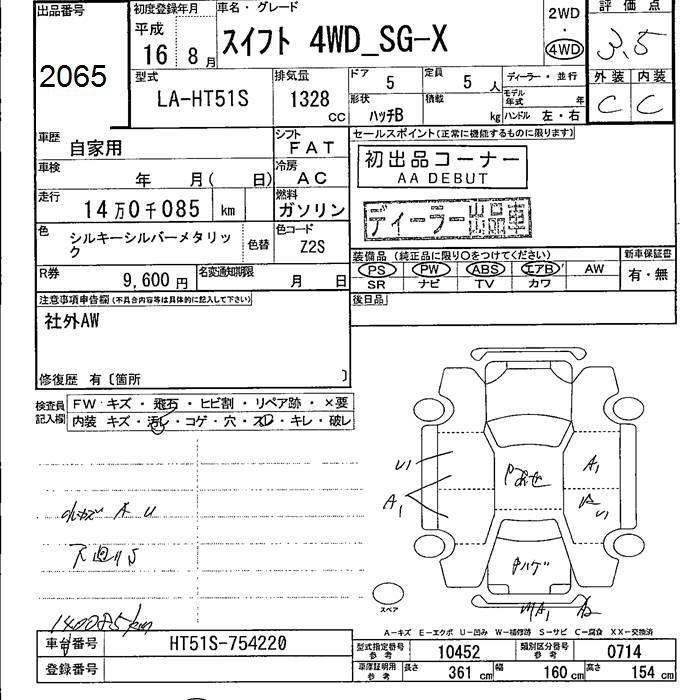 出品番号
2065
初度登録年月
平成
16 8月
車名・グレード
スイフト 4WD_SG-X
2WD
・
4WD
評価点
3.5
型式
LA-HT51S
排気量
1328
CC
ドア 5
定員 5 人
ディーラー・並行
外装 内装
C C
形状 ハッチB
積載 kg
モデル年式 年
ハンドル 左・右
車歴 自家用
シフト FAT
セールスポイント(正常に機能するものに限ります)
車検 年 月( 日)
冷房 AC
初出品コーナー
AA DEBUT
走行 14万0千085 km
燃料 ガソリン
ディーラー出品車
色 シルキーシルバーメタリック
色替
色コード Z2S
装備品 (純正品に限り○をつけてください)
新車保証書
PS PW ABS エアB AW
有・無
SR ナビ TV カワ
R券 9,600円
名変通知期限 月 日
後日品
注意事項申告欄(不具合内容等は具体的に記入して下さい)
社外AW
修復歴 有〔箇所 〕
検査員記入欄
FW キズ・飛石・ヒビ割・リペア跡・×要
内装 キズ・汚レ・コゲ・穴・スレ・キレ・破レ
U1
A1
Pあせ
A1
U1
小キズ A U
下廻りS
Pハゲ
スペア
MA1
140085km
A-キズ E-エクボ U-凹み W-補修跡 S-サビ C-腐食 XX-交換済
車台番号 HT51S-754220
型式指定番号 参考 10452
類別区分番号 参考 0714
登録番号
車庫証明用 参考 長さ 361 cm 幅 160 cm 高さ 154 cm